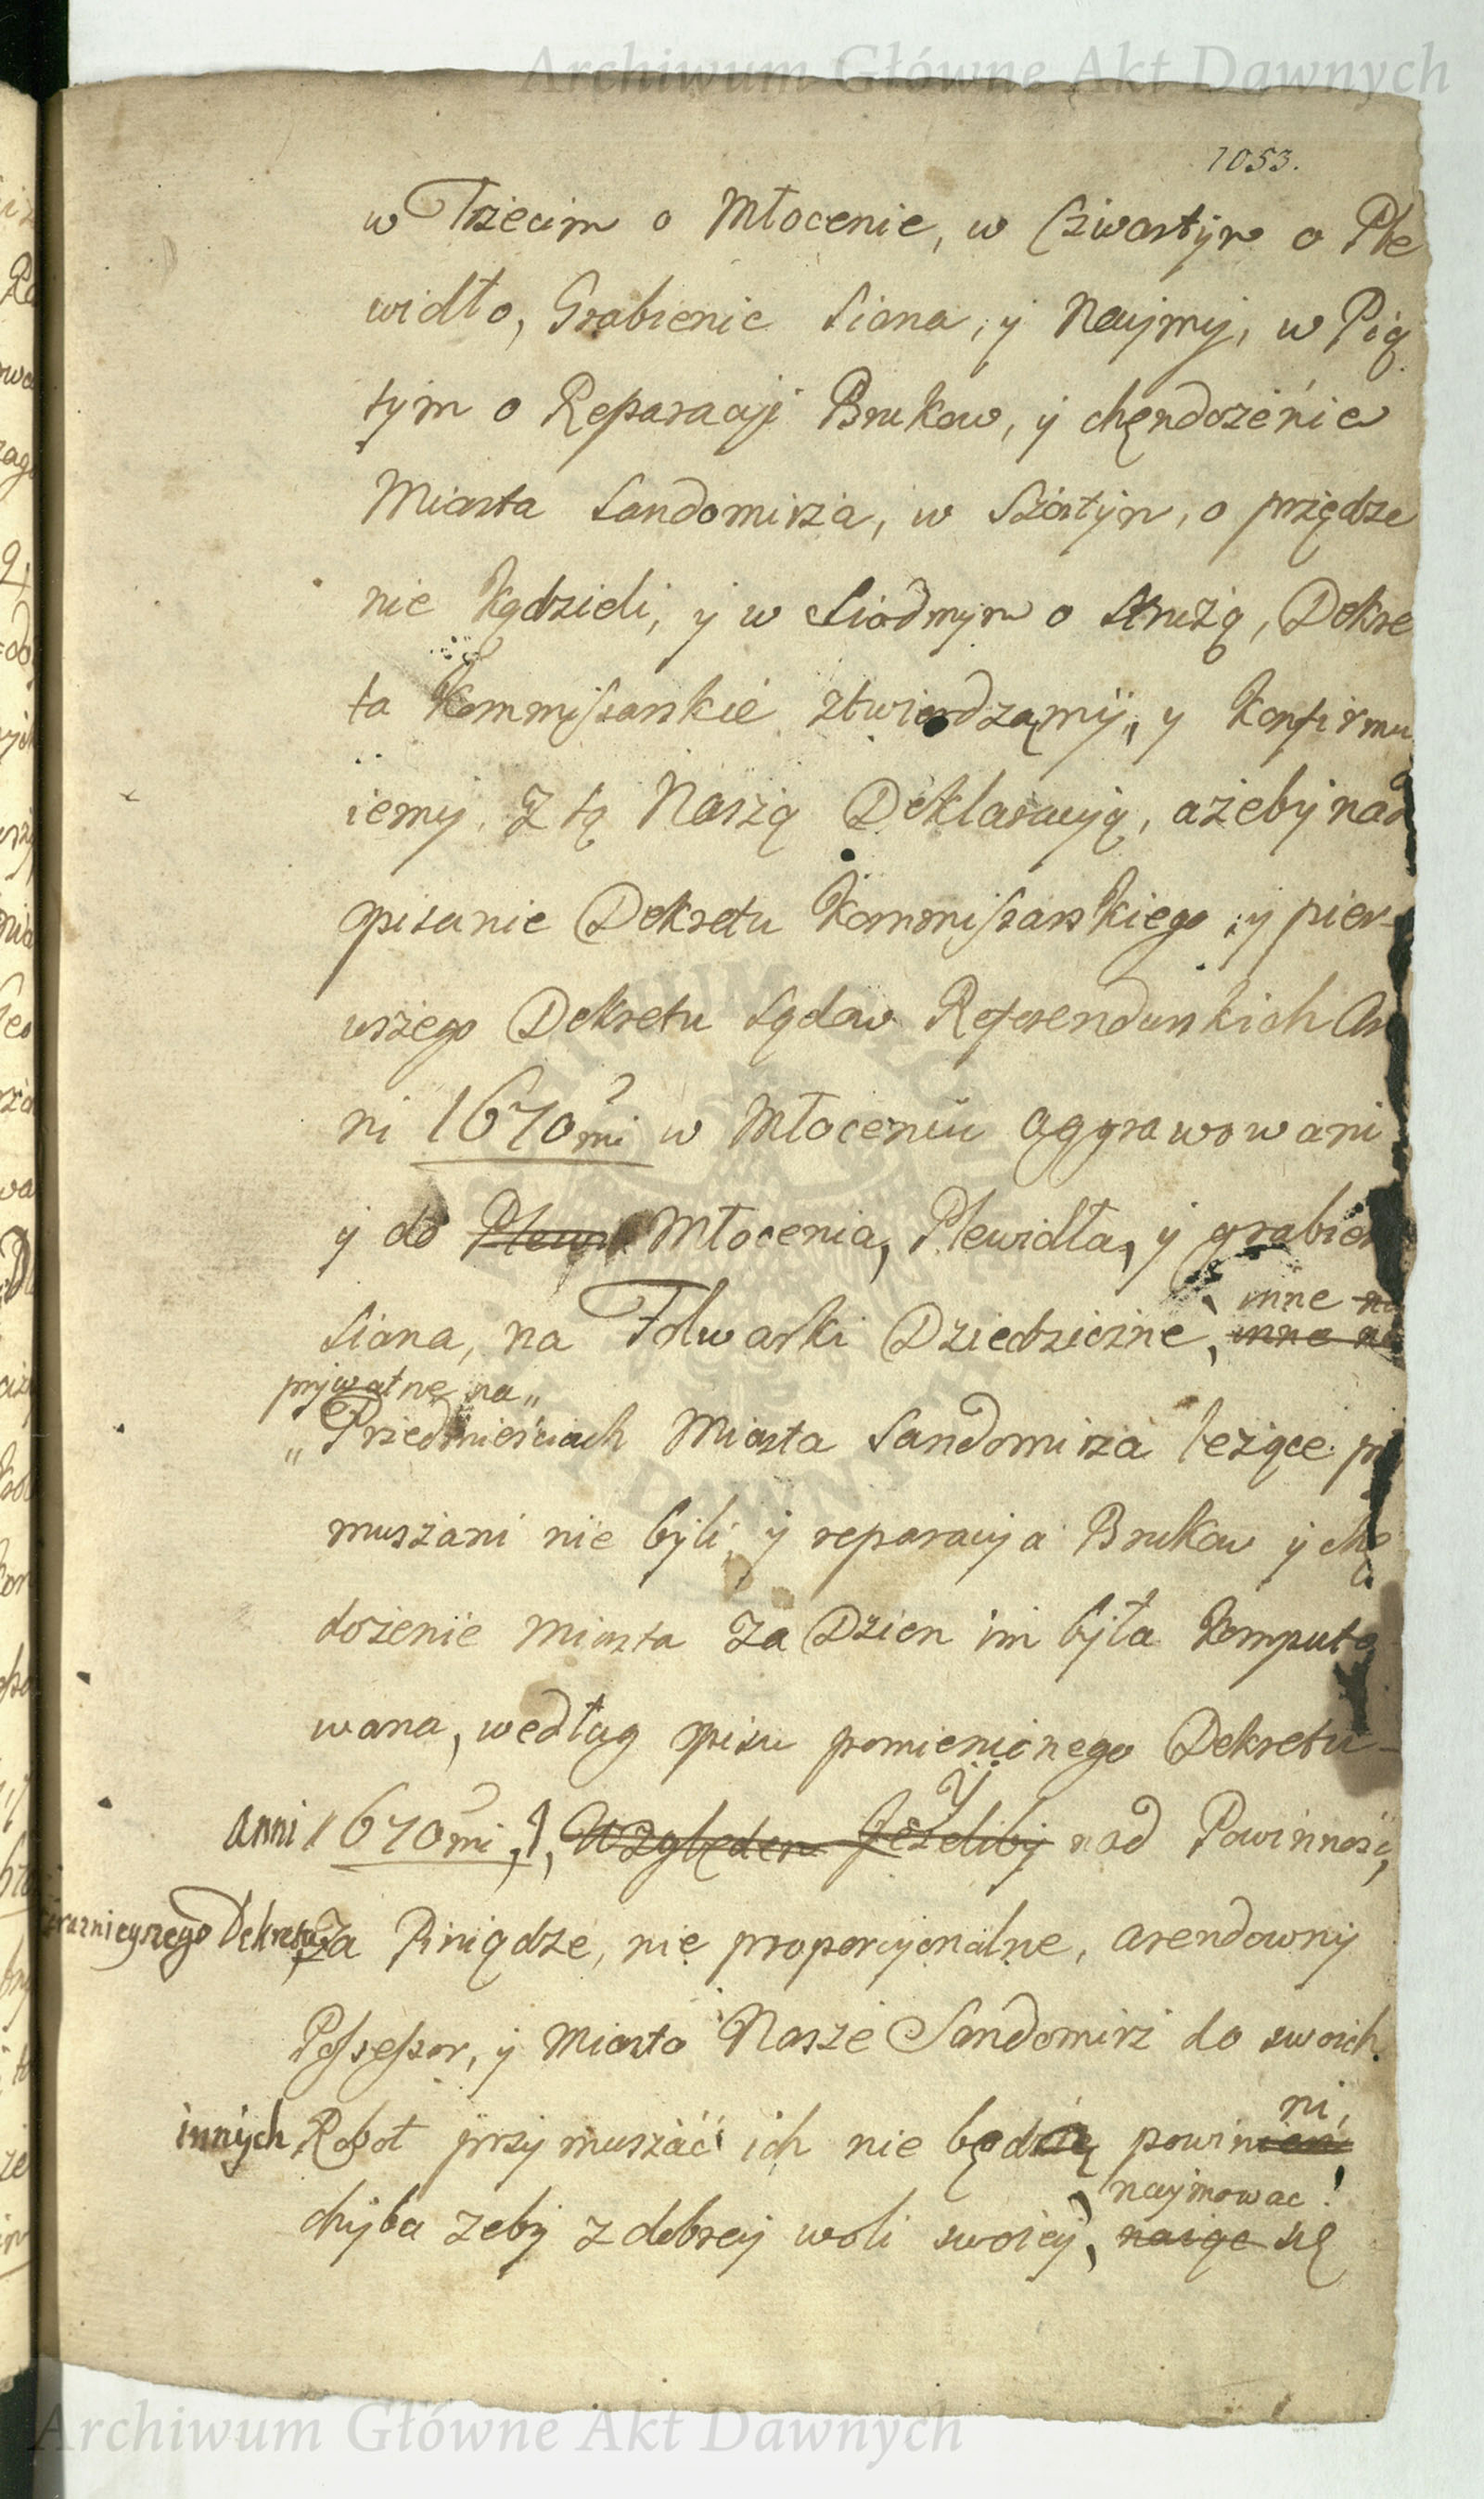 Archiwum Główne Akt Dawnych
1053.
w Trzecim o Młocenie, w Czwartym o Ple
widło, Grabienie Siana, y Najmy, w Pią
tym o Reparacyi Brukow, y chędożenie
Miasta Sandomirza, w Szostym, o przędze
nie Kądzieli, y w Siodmym o Strużą, Dekre
ta Kommissarskie ztwierdzamy, y Konfirmu
iemy. Z tą Naszą Deklaracyją, ażeby nad
opisanie Dekretu Kommissarskiego, y pier-
wszego Dekretu Sądow Referendarskich An
ni 1670mi w Młoceniu aggrawowani
y do Młocenia, Plewidła, y grabien
inne
Siana, na Folwarki Dziedziczne,
prywatne na
Przedmieściach Miasta Sandomirza leżące
muszani nie byli, y reparacyja Brukow y chę
dożenie miasta za Dzien im była komputo
wana, według opisu pomienionego Dekretu
y
anni 1670mi, Względem Jeżeliby nad Powinność,
teraznieyszego Dekretu, Za Piniądze, nie proporcyonalne, arendowny
Possessor, y Miasto Nasze Sandomirz do swoich
ni,
innych Robot przymuszać ich nie będą powinien
najmowac
chyba zeby z dobrey woli swoiey, naiąc się
Archiwum Główne Akt Dawnych